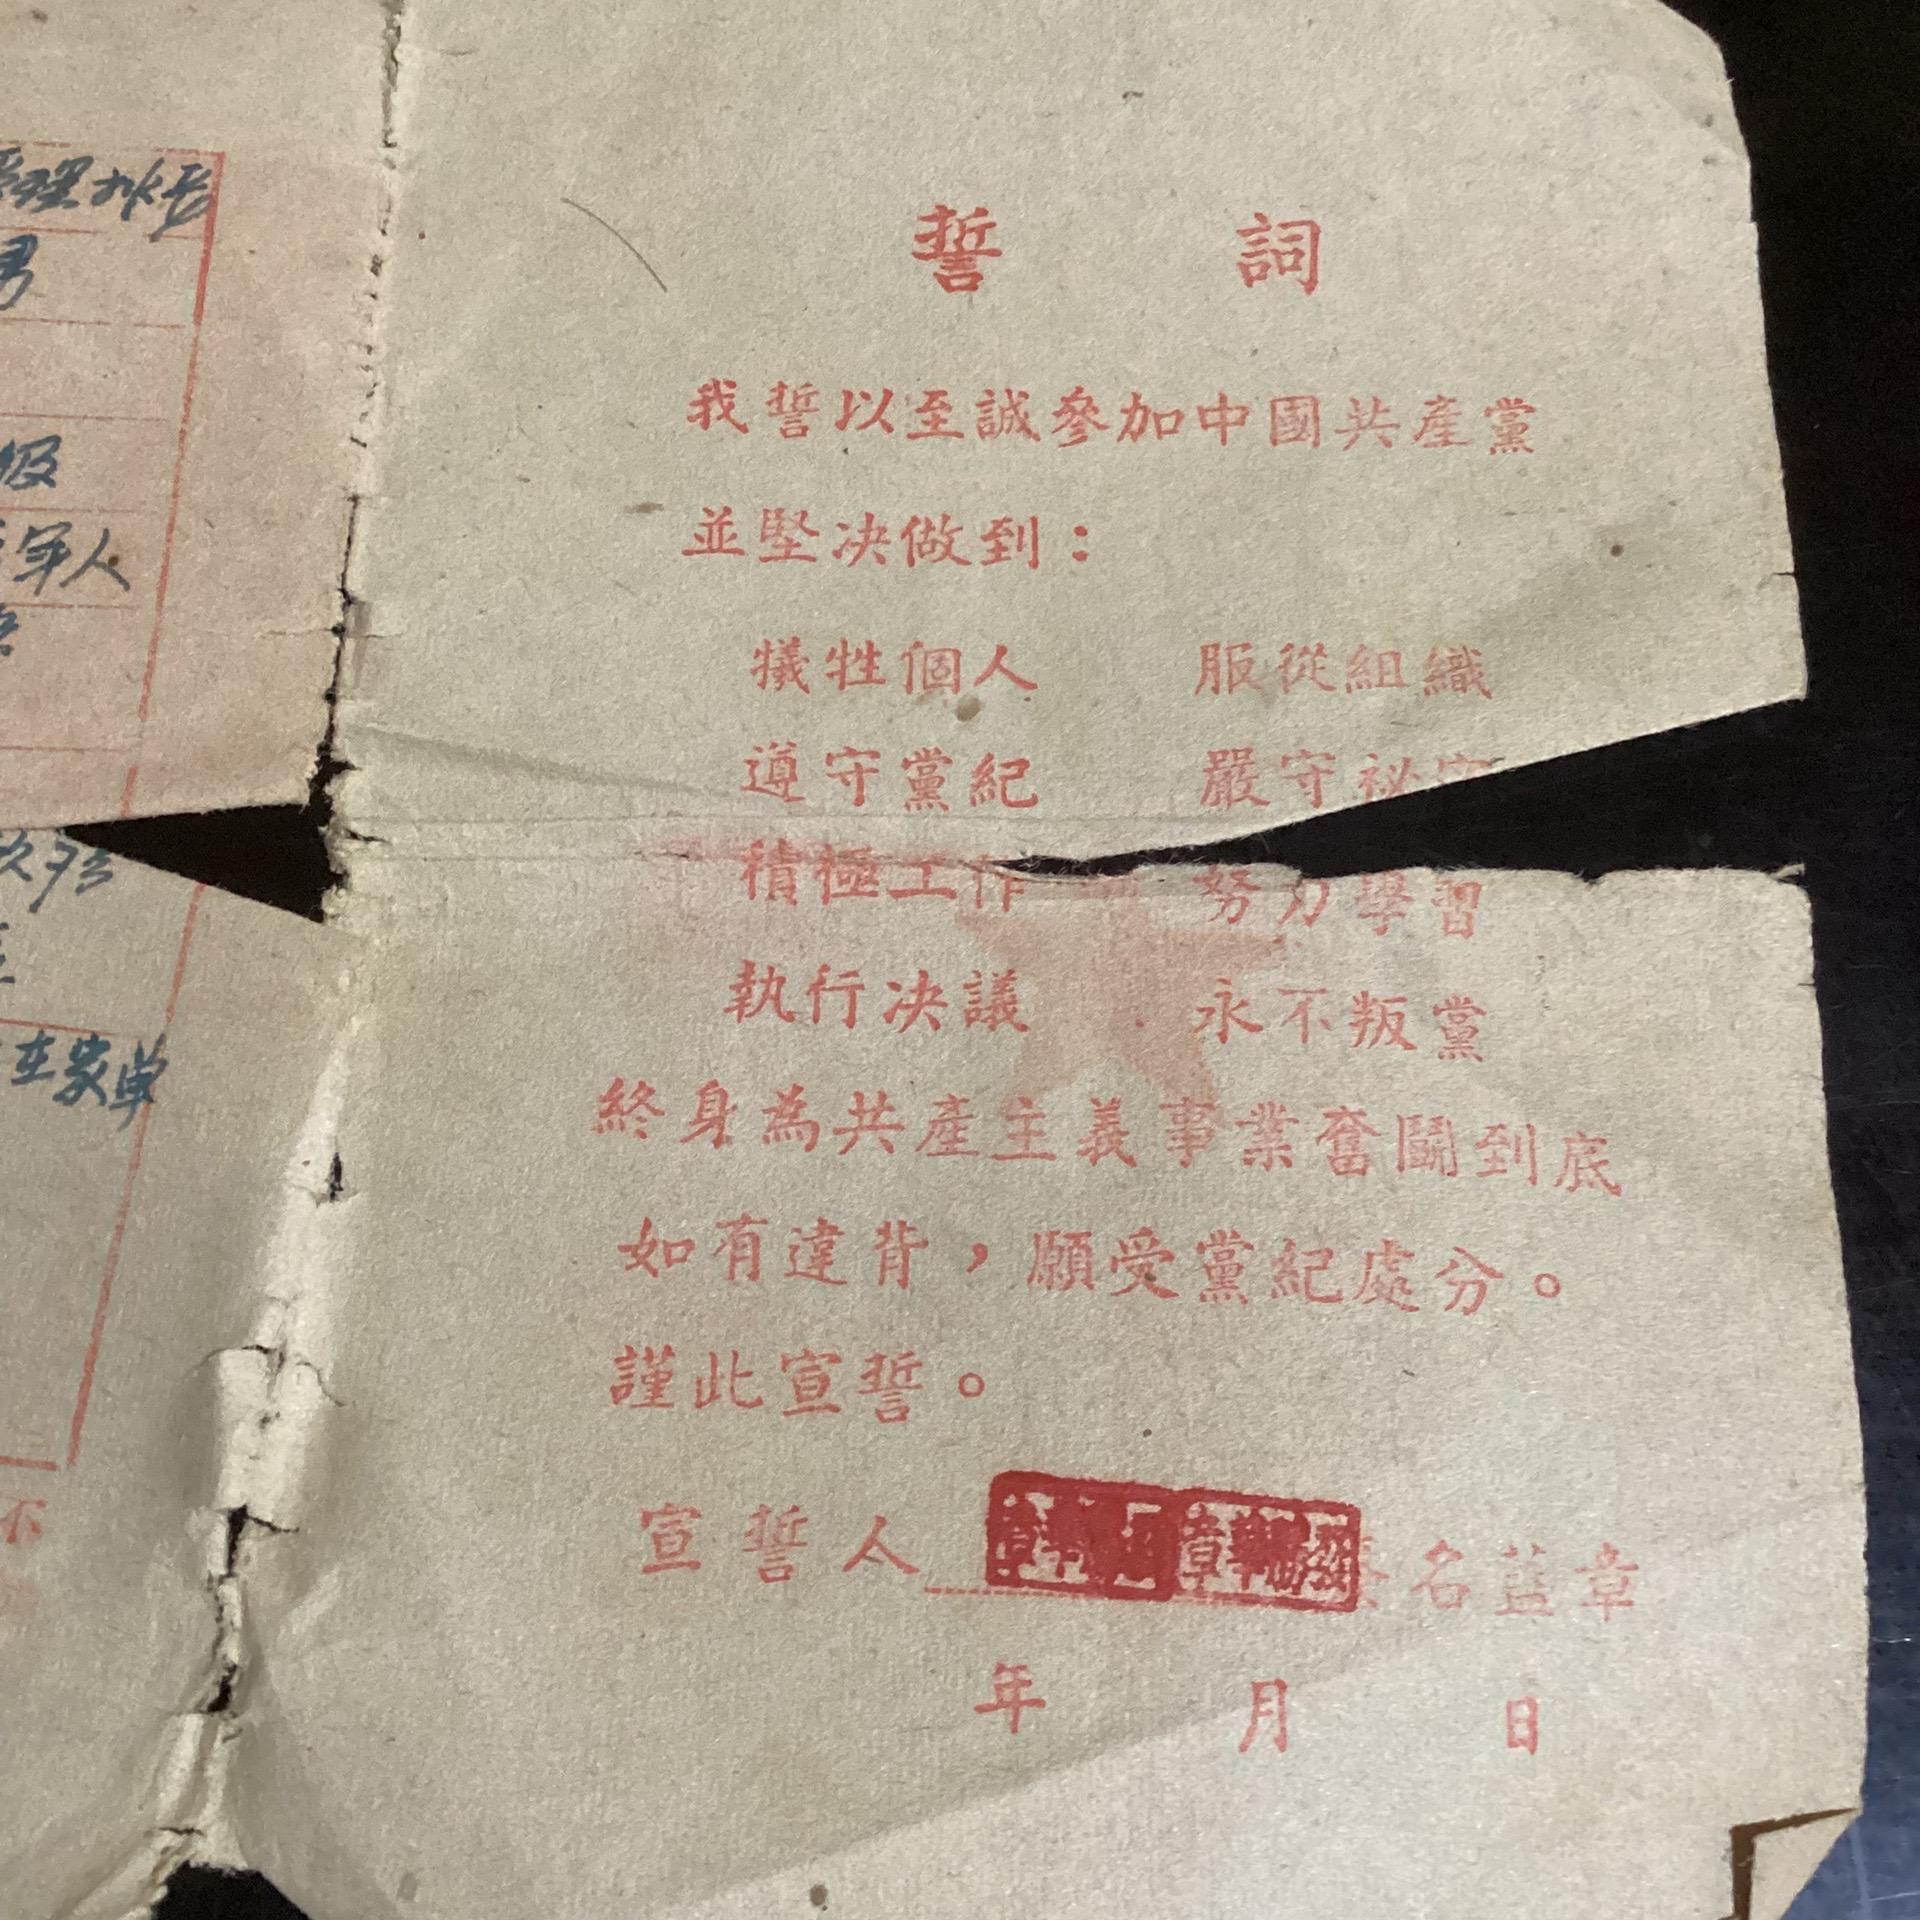 誓 詞
我誓以至誠參加中國共產黨
並堅决做到：
犠牲個人 服從組織
遵守黨紀 嚴守祕
積極工作 努力學習
執行决議 永不叛黨
終身為共產主義事業奮鬭到底
如有違背，願受黨紀處分。
謹此宣誓。
宣誓人 名盖章
年 月 日
理排長
男
級
年人
在家单
不